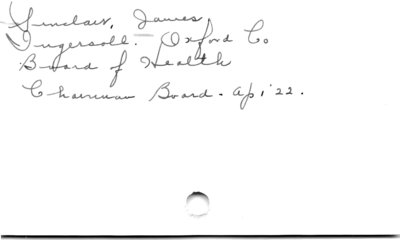 Sinclair, James
Ingersoll. Oxford Co
Board of Health
Chairman Board. Ap, '22.